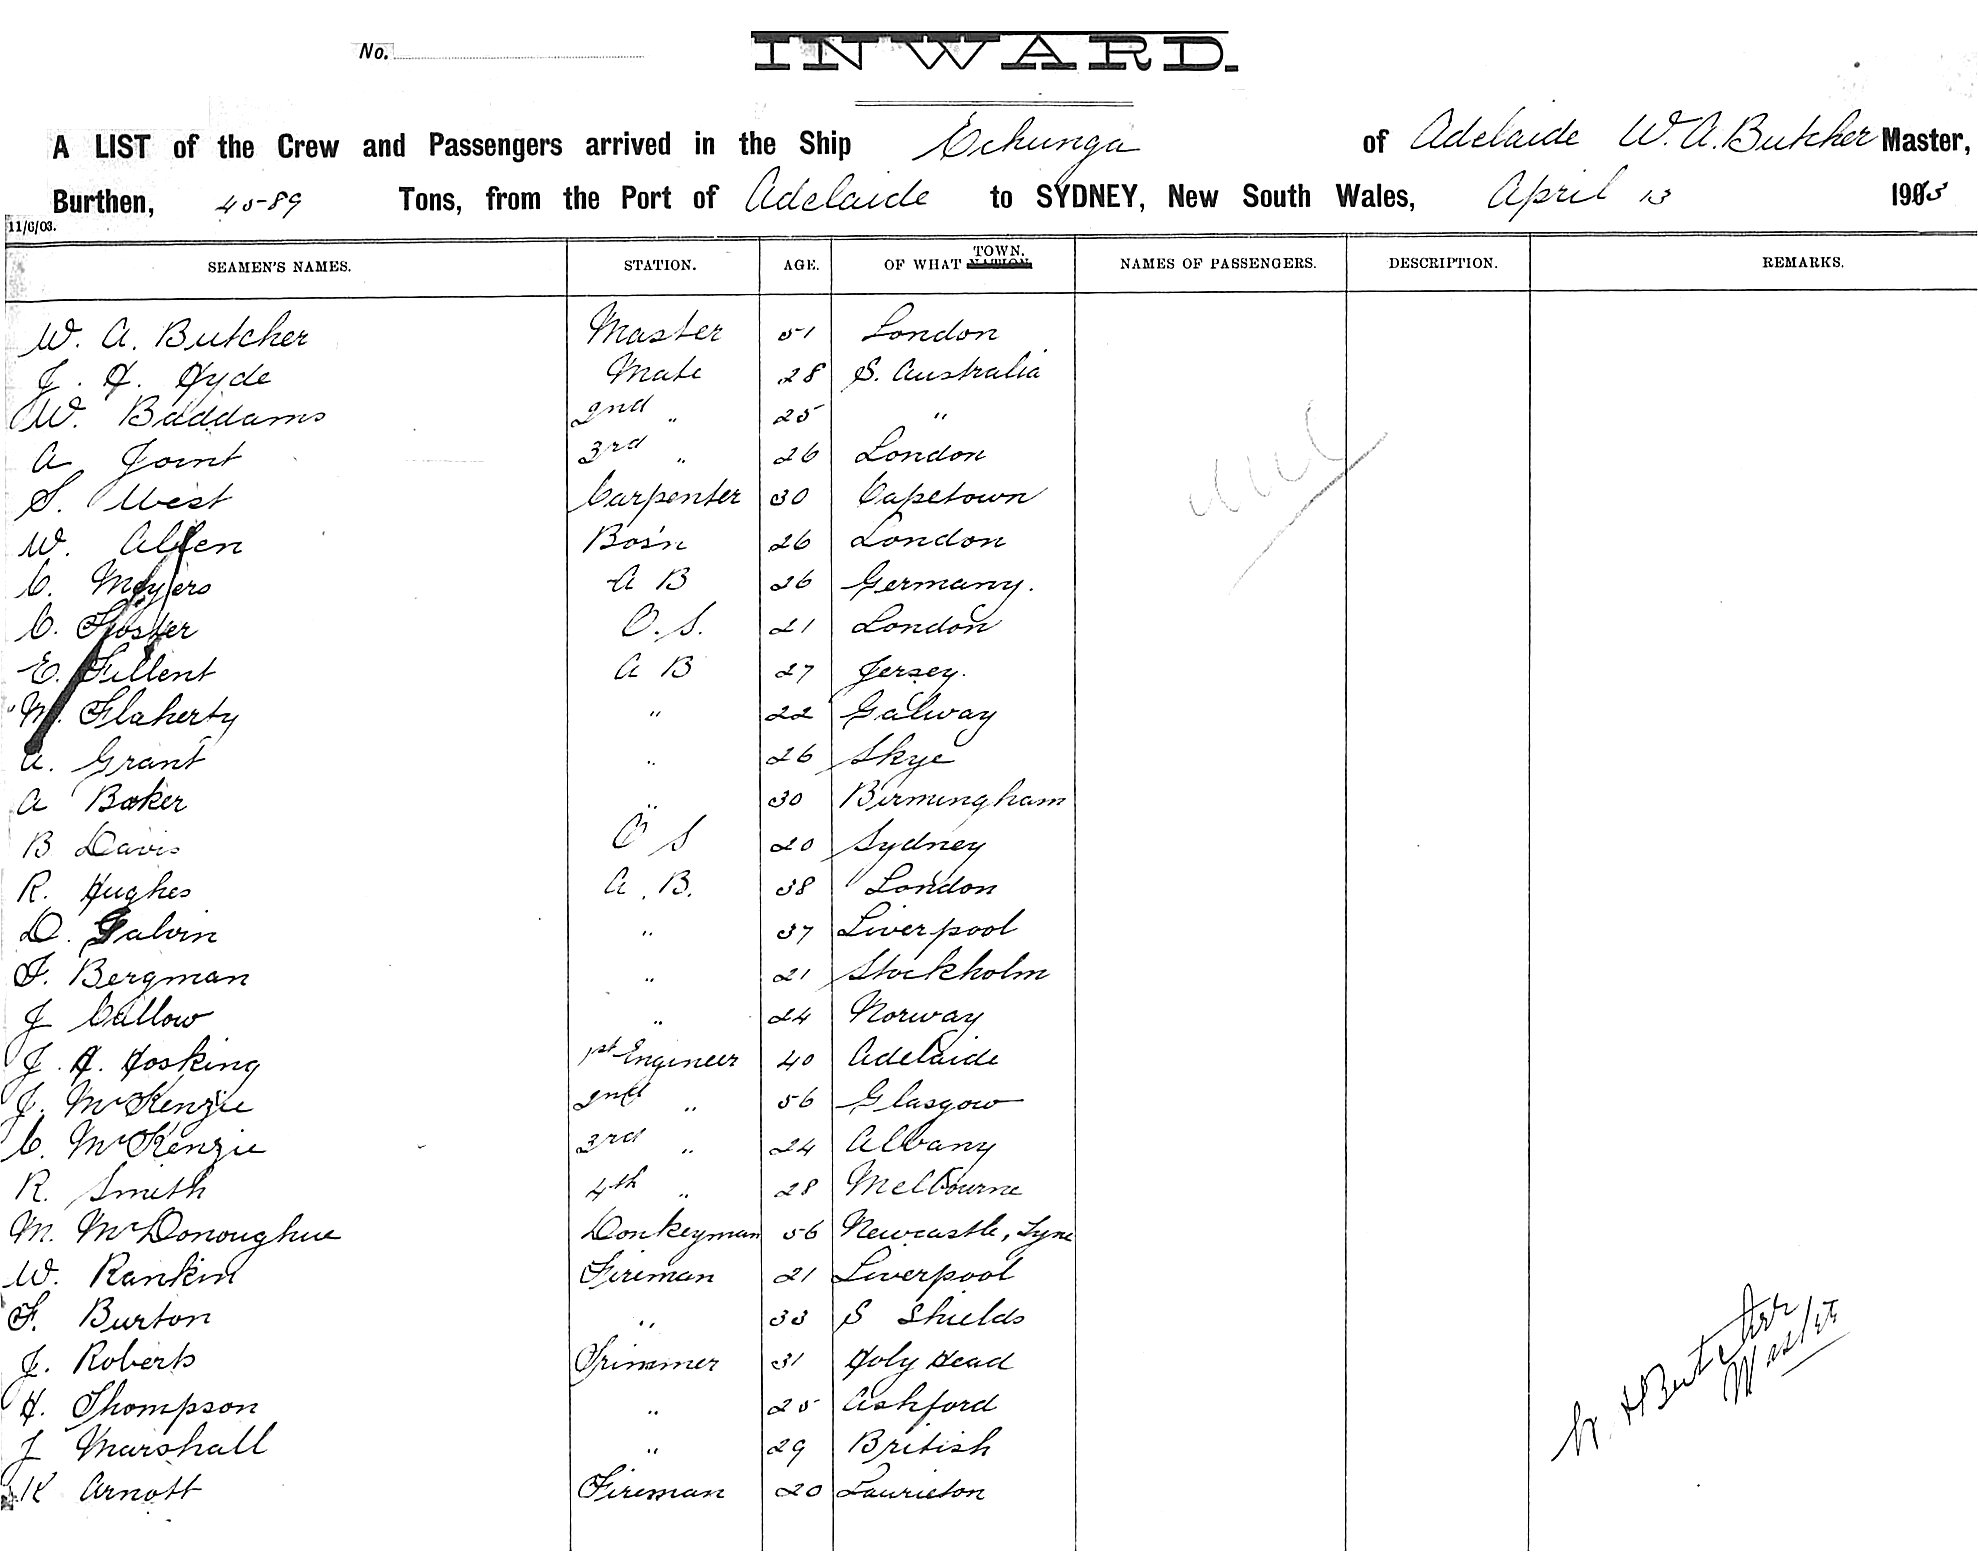 No.
INWARD.
A LIST of the Crew and Passengers arrived in the Ship Echunga of Adelaide W. A. Butcher Master,
Burthen, Tons, from the Port of Adelaide to SYDNEY, New South Wales, April 13
11/6/03.
SEAMEN'S NAMES. STATION. AGE. OF WHAT NATION. TOWN. NAMES OF PASSENGERS. DESCRIPTION. REMARKS.
W. A. Butcher Master 51 London
J. H. Hyde Mate 28 S. Australia
W. Baddams 2nd " 25 "
A Joint 3rd " 26 London
S. West Carpenter 30 Capetown
W. Allen Bos'n 26 London
C. Meyers A B 26 Germany.
C. Foster O. S. 21 London
E. Fillent A B 27 Jersey.
M. Flaherty " 22 Galway
A. Grant " 26 Skye
A Baker " 30 Birmingham
B Davis O S 20 Sydney
R. Hughes A. B. 38 London
D. Galvin " 37 Liverpool
F. Bergman " 21 Stockholm
J Callow " 24 Norway
J. H. Hosking 1st Engineer 40 Adelaide
J. McKenzie 2nd " 56 Glasgow
C. McKenzie 3rd " 24 Albany
R. Smith 4th " 28 Melbourne
M. McDonoughue Donkeyman 56 Newcastle, Tyne
W. Rankin Fireman 21 Liverpool
F. Burton " 33 S Shields
J. Roberts Trimmer 31 Holy Head
H. Thompson " 25 Ashford
J Marshall " 29 British
R Arnott Fireman 20 Laurieton
Butcher
Master